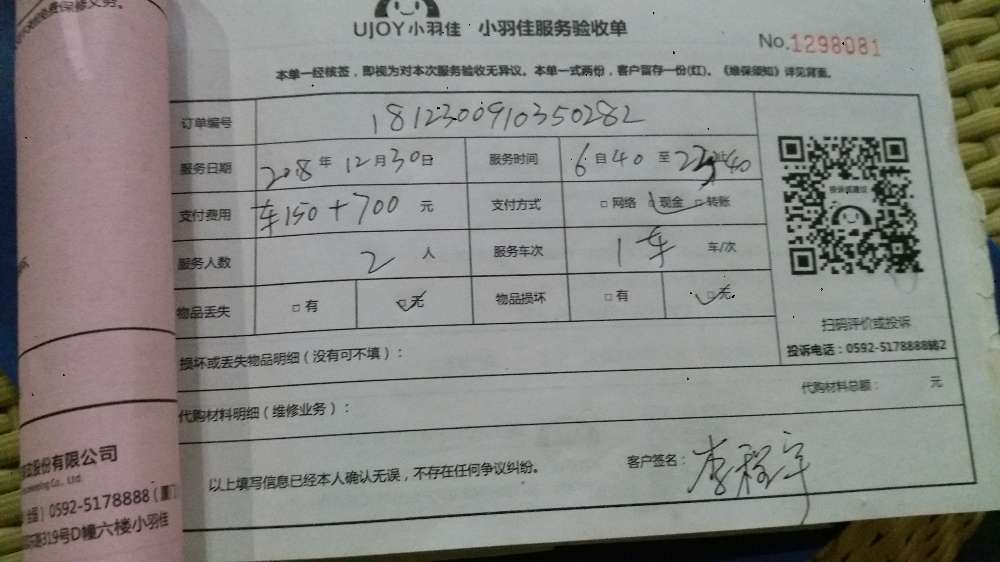 UJOY小羽佳 小羽佳服务验收单
No.1298081
本单一经核签，即视为对本次服务验收无异议。本单一式两份，客户留存一份(红)。《维保须知》详见背面。
订单编号 181230091035 0282
服务日期 2018年12月30日 服务时间 6自40至23 40
支付费用 车150+700元 支付方式 □网络 □现金 □转账
服务人数 2人 服务车次 1车 车/次
物品丢失 □有 □无 物品损坏 □有 □无
损坏或丢失物品明细（没有可不填）：
代购材料明细（维修业务）： 代购材料总额： 元
以上填写信息已经本人确认无误，不存在任何争议纠纷。 客户签名：
扫码评价或投诉
投诉电话：0592-5178888转2
股份有限公司
0592-5178888
319号D幢六楼小羽佳